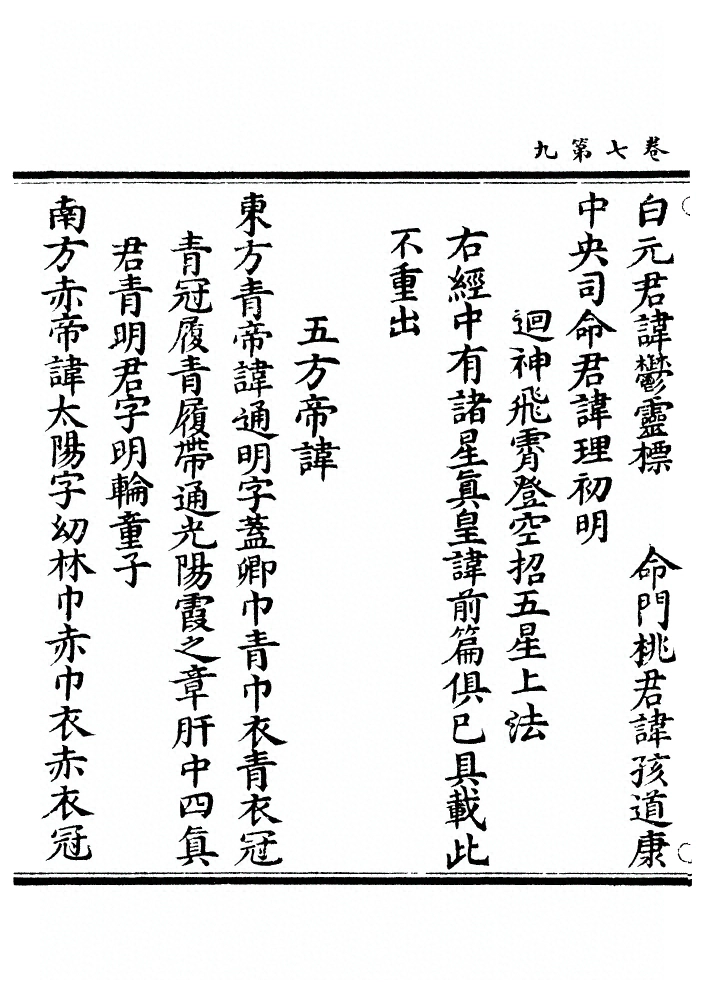 卷七第九
白元君諱鬱靈標　命門桃君諱孩道康
中央司命君諱理初明
迴神飛霄登空招五星上法
右經中有諸星眞皇諱前篇俱已具載此
不重出
五方帝諱
東方青帝諱通明字蓋卿巾青巾衣青衣冠
青冠履青履帶通光陽霞之章肝中四眞
君青明君字明輪童子
南方赤帝諱太陽字幼林巾赤巾衣赤衣冠